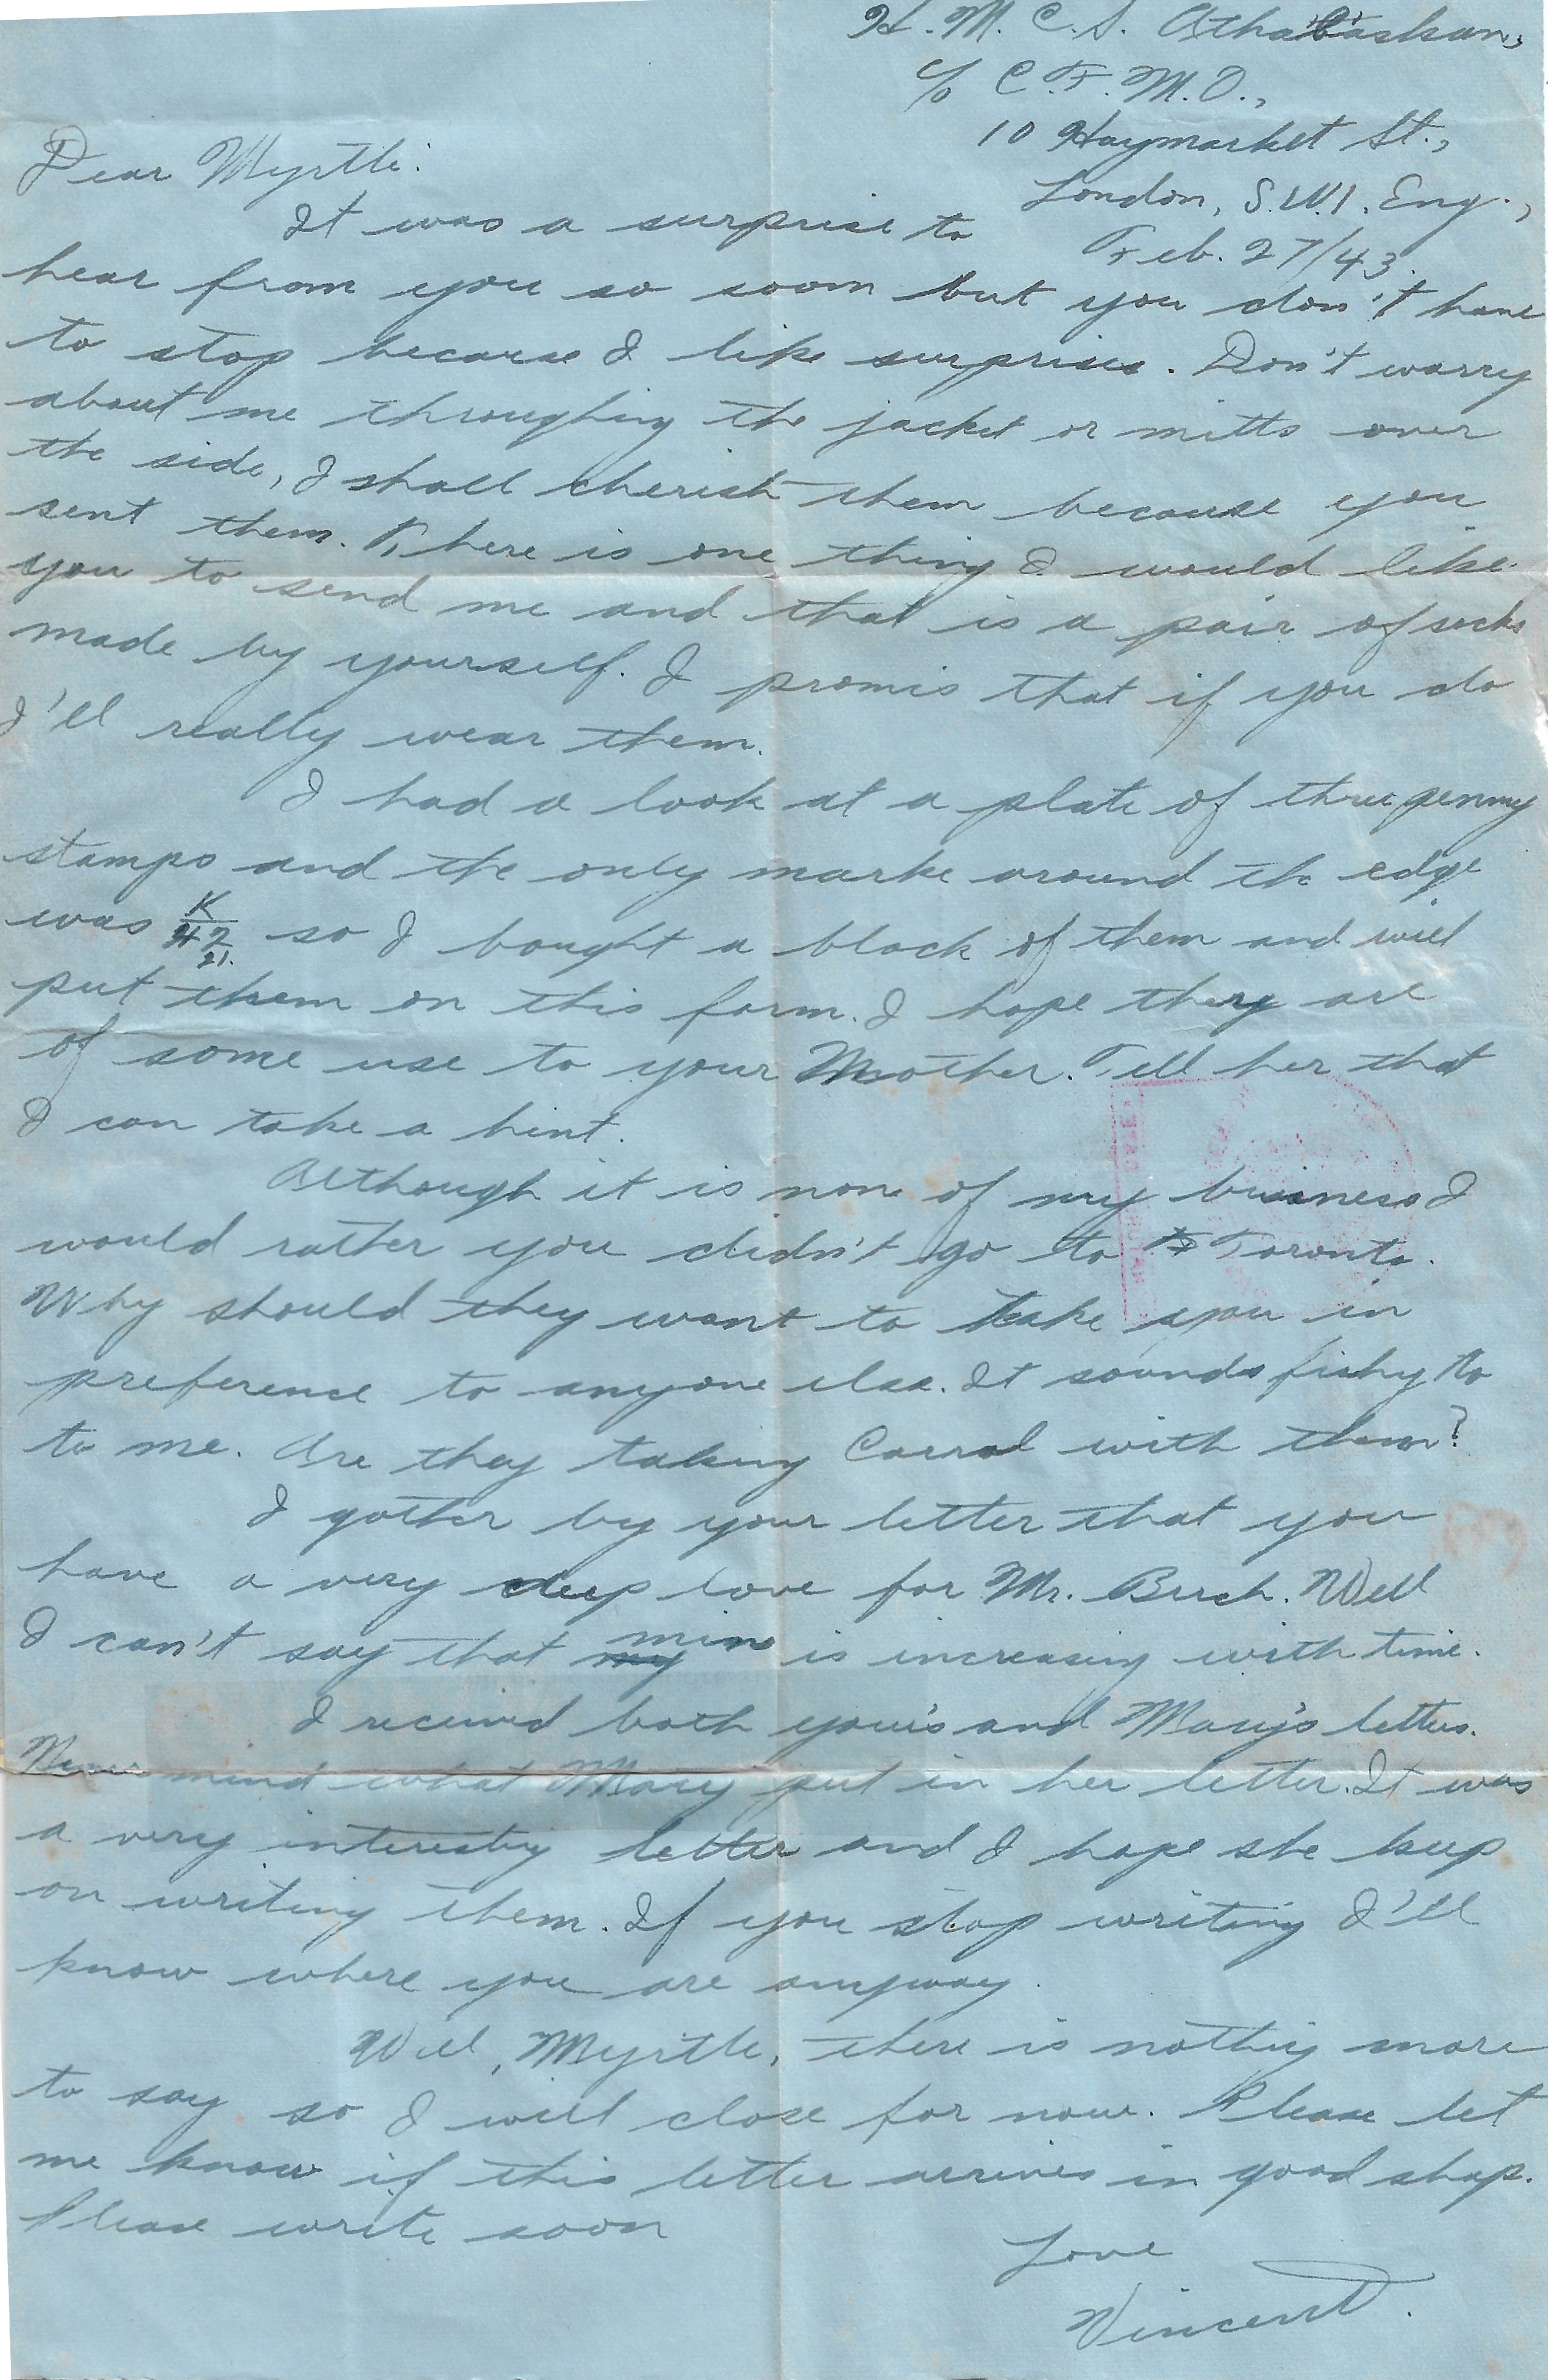 H. M. C. S. Athabaskan,
c/o C. F. M. O.,
10 Haymarket St.,
London, S.W.1. Eng.,
Feb. 27/43.
Dear Myrtle:
It was a surprise to
hear from you so soon but you don't have
to stop because I like surprises. Don't worry
about me throughing the jacket or mitts over
the side, I shall cherish them because you
sent them. There is one thing I would like
you to send me and that is a pair of socks
made by yourself. I promis that if you do
I'll really wear them.
I had a look at a plate of three penny
stamps and the only marke around the edge
was K/42 21. so I bought a block of them and will
put them on this form. I hope they are
of some use to your Mother. Tell her that
I can take a hint.
Although it is none of my business I
would rather you didn't go to Toronto.
Why should they want to take you in
preference to anyone else. It sounds fishy to
to me. Are they taking Carrol with them?
I gather by your letter that you
have a very deep love for Mr. Birch. Well
I can't say that mine is increasing with time.
I received both your's and Mary's letters.
Never mind what Mary put in her letter. It was
a very interesting letter and I hope she keep
on writing them. If you stop writing I'll
know where you are anyway.
Well, Myrtle, there is nothing more
to say so I will close for now. Please let
me know if this letter arrives in good shap.
Please write soon
Love
Vincent.